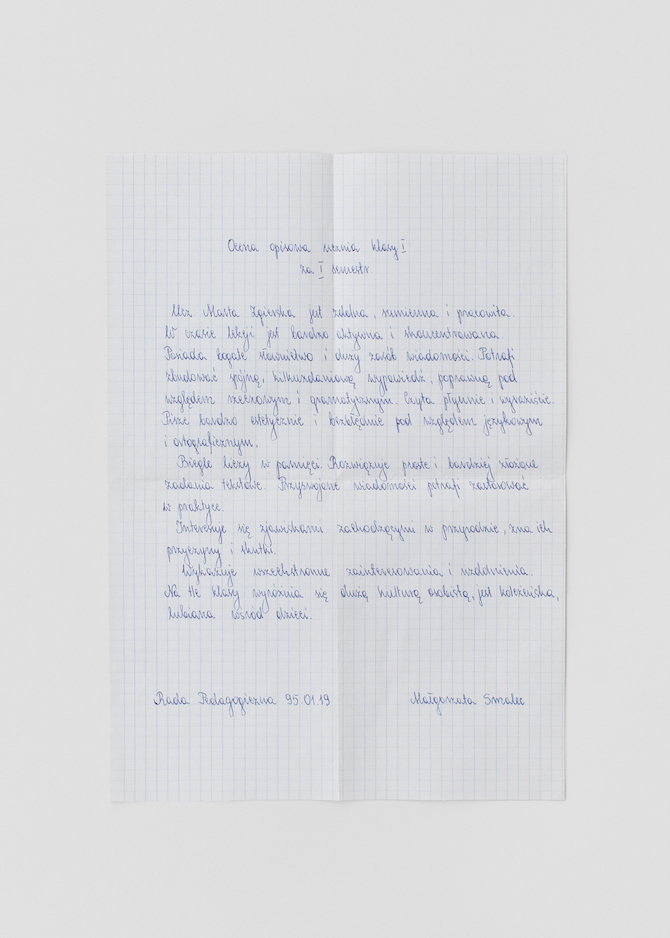 Ocena opisowa ucznia klasy I
za I semestr.
Ucz. Marta Zgierska jest zdolna, sumienna i pracowita.
W czasie lekcji jest bardzo aktywna i skoncentrowana.
Posiada bogate słownictwo i duży zasób wiadomości. Potrafi
zbudować spójną, kilkuzdaniową wypowiedź, poprawną pod
względem rzeczowym i gramatycznym. Czyta płynnie i wyraziście.
Pisze bardzo estetycznie i bezbłędnie pod względem językowym
i ortograficznym.
Biegle liczy w pamięci. Rozwiązuje proste i bardziej złożone
zadania tekstowe. Przyswojone wiadomości potrafi zastosować
w praktyce.
Interesuje się zjawiskami zachodzącymi w przyrodzie, zna ich
przyczyny i skutki.
Wykazuje wszechstronne zainteresowania i uzdolnienia.
Na tle klasy wyróżnia się dużą kulturą osobistą, jest koleżeńska,
lubiana wśród dzieci.
Rada Pedagogiczna 95.01.19
Małgorzata